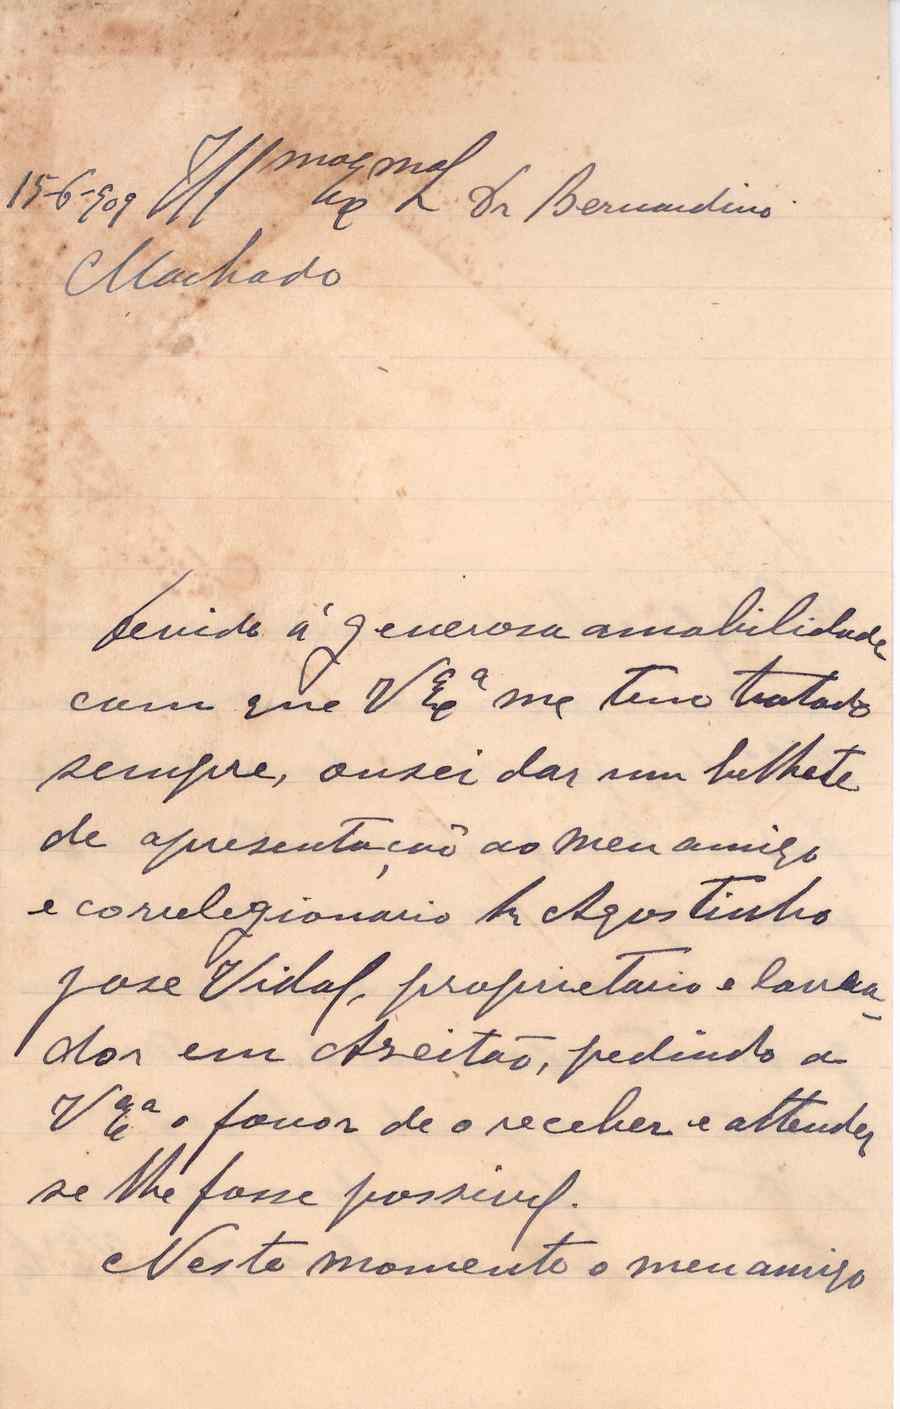 15-6-909 Illmo e Exmo Sr Dr Bernardino
Machado
Devido á generosa amabilidade
com que V Exª me tem tratado
sempre, ousei dar um bilhete
de apresentação ao meu amigo
e correlegionario Sr Agostinho
José Vidal, proprietario e lavra-
dor em Azeitão, pedindo a
V Exª o favor de o receber e attender
se lhe fosse possivel.
Neste momento o meu amigo